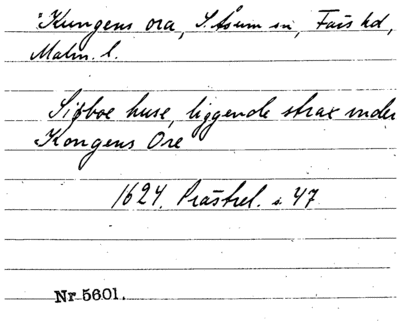 *Kungens ora, S. Åsum sn, Färs hd,
Malm. l.
Sigboe huse, liggende strax under
Kongens Ore
1624. Prästrel. s. 47
Nr 5601.